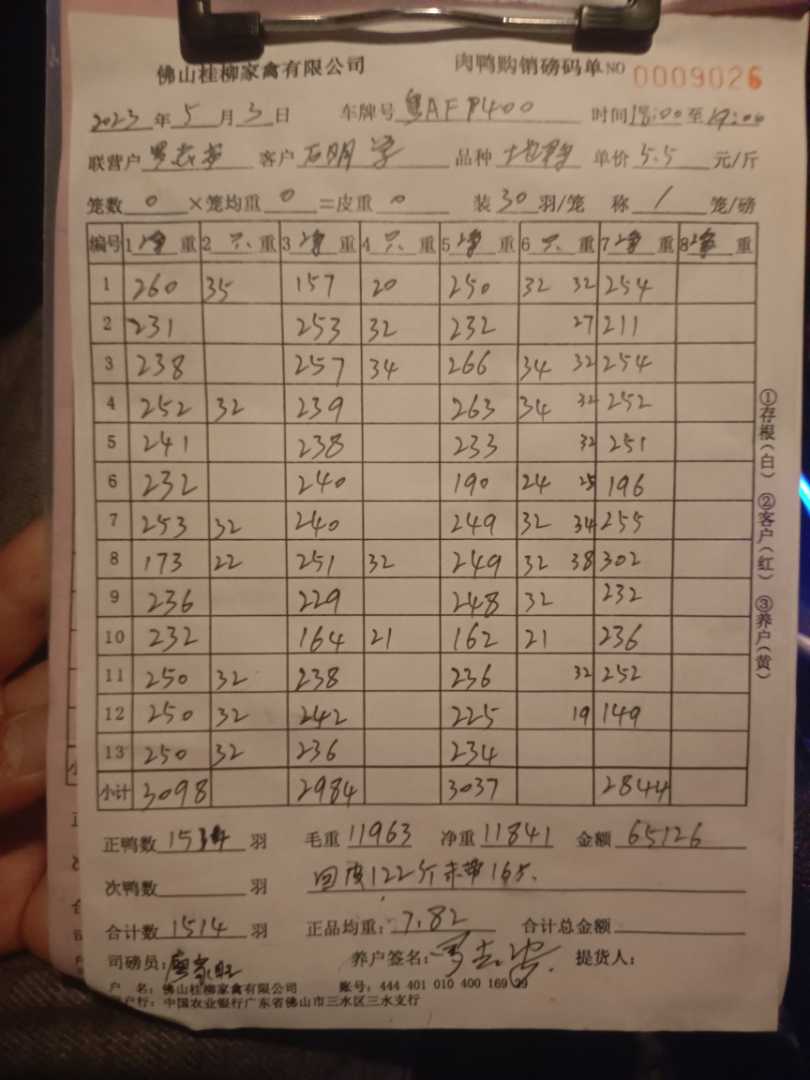 佛山桂柳家禽有限公司 肉鸭购销磅码单NO 0009026
2023年5月3日 车牌号 粤AFP400 时间18:00至19:00
联营户 客户 石明 品种 单价5.5元/斤
笼数0×笼均重0=皮重0 装30羽/笼 称1笼/磅
编号 1净重 2只重 3净重 4只重 5净重 6只重 7净重 8净重
1 260 35 157 20 250 32 32 254
2 231 253 32 232 27 211
3 238 257 34 266 34 32 254
4 252 32 239 263 34 32 252
5 241 238 233 32 251
6 232 240 190 24 25 196
7 253 32 240 249 32 34 255
8 173 22 251 32 249 32 38 302
9 236 229 248 32 232
10 232 164 21 162 21 236
11 250 32 238 236 32 252
12 250 32 242 225 19 149
13 250 32 236 234
小计 3098 2984 3037 2844
正鸭数1514羽 毛重11963 净重11841 金额65126
次鸭数 羽 回皮122斤未带165.
合计数1514羽 正品均重:7.82 合计总金额
司磅员: 养户签名: 提货人:
户 名:佛山桂柳家禽有限公司 账号:444 401 010 400 169 29
户行:中国农业银行广东省佛山市三水区三水支行
①存根(白) ②客户(红) ③养户(黄)